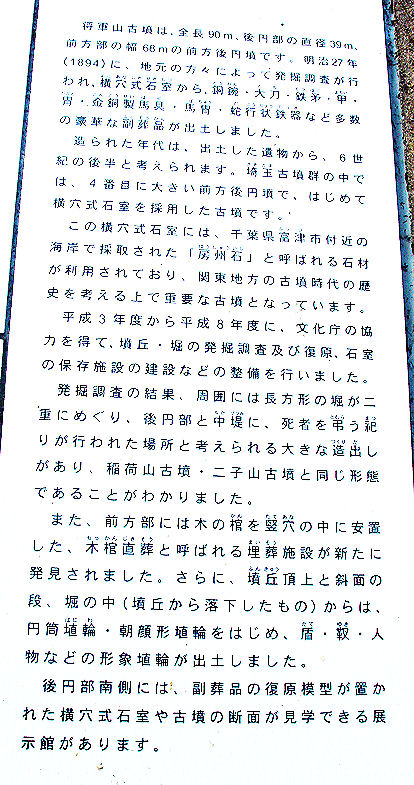 将軍山古墳は、全長90m、後円部の直径39m、
前方部の幅68mの前方後円墳です。明治27年
(1894)に、地元の方々によって発掘調査が行
われ、横穴式石室から、銅鋺・大刀・鉄矛・甲・
冑・金銅製馬具・馬冑・蛇行状鉄器など多数
の豪華な副葬品が出土しました。
造られた年代は、出土した遺物から、6世
紀の後半と考えられます。埼玉古墳群の中で
は、4番目に大きい前方後円墳で、はじめて
横穴式石室を採用した古墳です。
この横穴式石室には、千葉県富津市付近の
海岸で採取された「房州石」と呼ばれる石材
が利用されており、関東地方の古墳時代の歴
史を考える上で重要な古墳となっています。
平成3年度から平成8年度に、文化庁の協
力を得て、墳丘・堀の発掘調査及び復原、石室
の保存施設の建設などの整備を行いました。
発掘調査の結果、周囲には長方形の堀が二
重にめぐり、後円部と中堤に、死者を弔う祀
りが行われた場所と考えられる大きな造出し
があり、稲荷山古墳・二子山古墳と同じ形態
であることがわかりました。
また、前方部には木の棺を竪穴の中に安置
した、木棺直葬と呼ばれる埋葬施設が新たに
発見されました。さらに、墳丘頂上と斜面の
段、堀の中(墳丘から落下したもの)からは、
円筒埴輪・朝顔形埴輪をはじめ、盾・靫・人
物などの形象埴輪が出土しました。
後円部南側には、副葬品の復原模型が置か
れた横穴式石室や古墳の断面が見学できる展
示館があります。